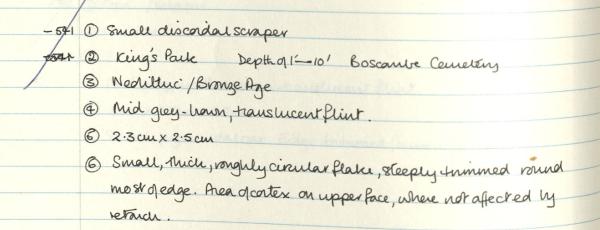 -541 ① Small discoidal scraper
② King's Park Depth of 1'-10' Boscombe Cemetery
③ Neolithic / Bronze Age
④ Mid grey-brown, translucent flint.
⑤ 2.3cm x 2.5cm
⑥ Small, thick, roughly circular flake, steeply trimmed round
most of edge. Area of cortex on upper face, where not affected by
retouch.